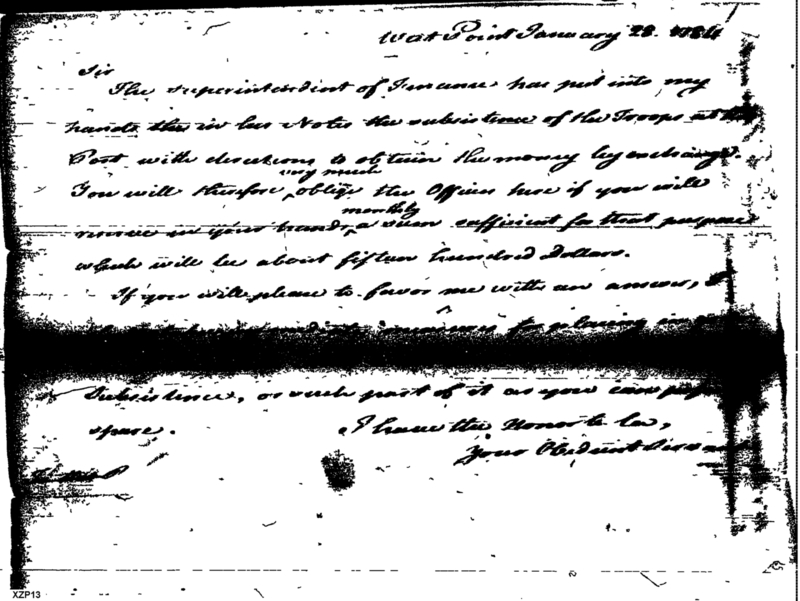 West Point January 28. 1784
Sir
The Superintendent of Finance has put into my
hands this in his Notes the subsistence of the Troops at
Post with directions to obtain the money by exchange.
very much
You will therefore oblige the Officers here if you will
monthly
reserve in your hands, a sum sufficient for that purpose
which will be about fifteen hundred Dollars.
If you will please to favor me with an answer, I
measures for placing in
Subsistence, or such part of it as you can
spare.
I have the Honor to be,
Your Obedient Servant
XZP13